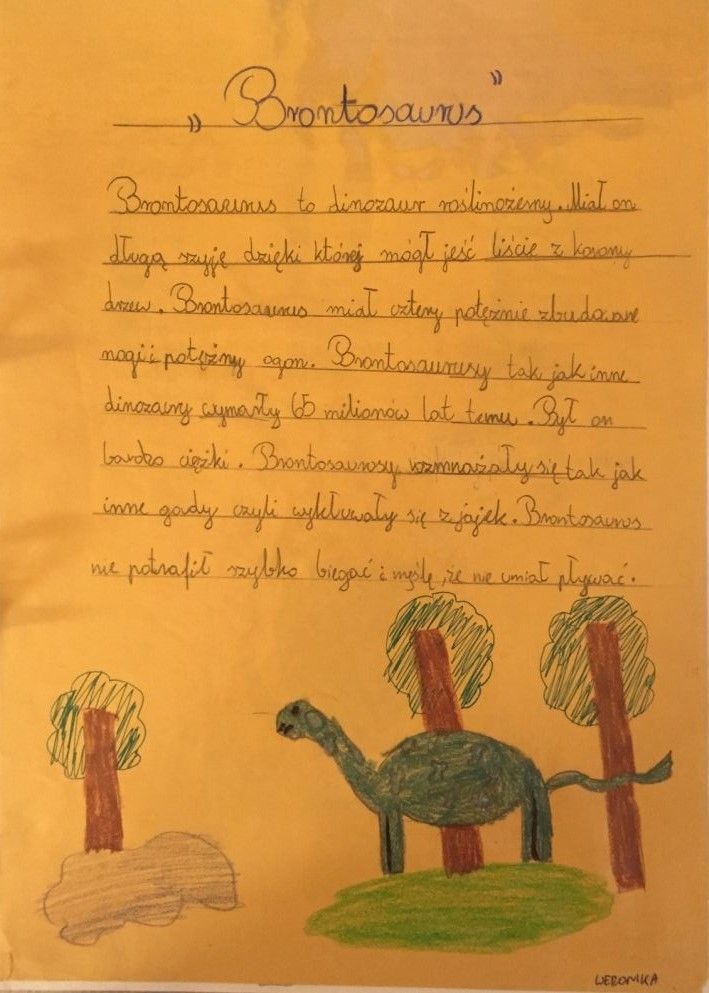 „Brontosaurus”
Brontosaurus to dinozaur roślinożerny. Miał on
długą szyję dzięki której mógł jeść liście z korony
drzew. Brontosaurus miał cztery potężnie zbudowane
nogi i potężny ogon. Brontosaurusy tak jak inne
dinozaury wymarły 65 milionów lat temu. Był on
bardzo ciężki. Brontosaurosy rozmnażały się tak jak
inne gady czyli wykłuwały się z jajek. Brontosaurus
nie potrafił szybko biegać i myślę, że nie umiał pływać.
WERONIKA